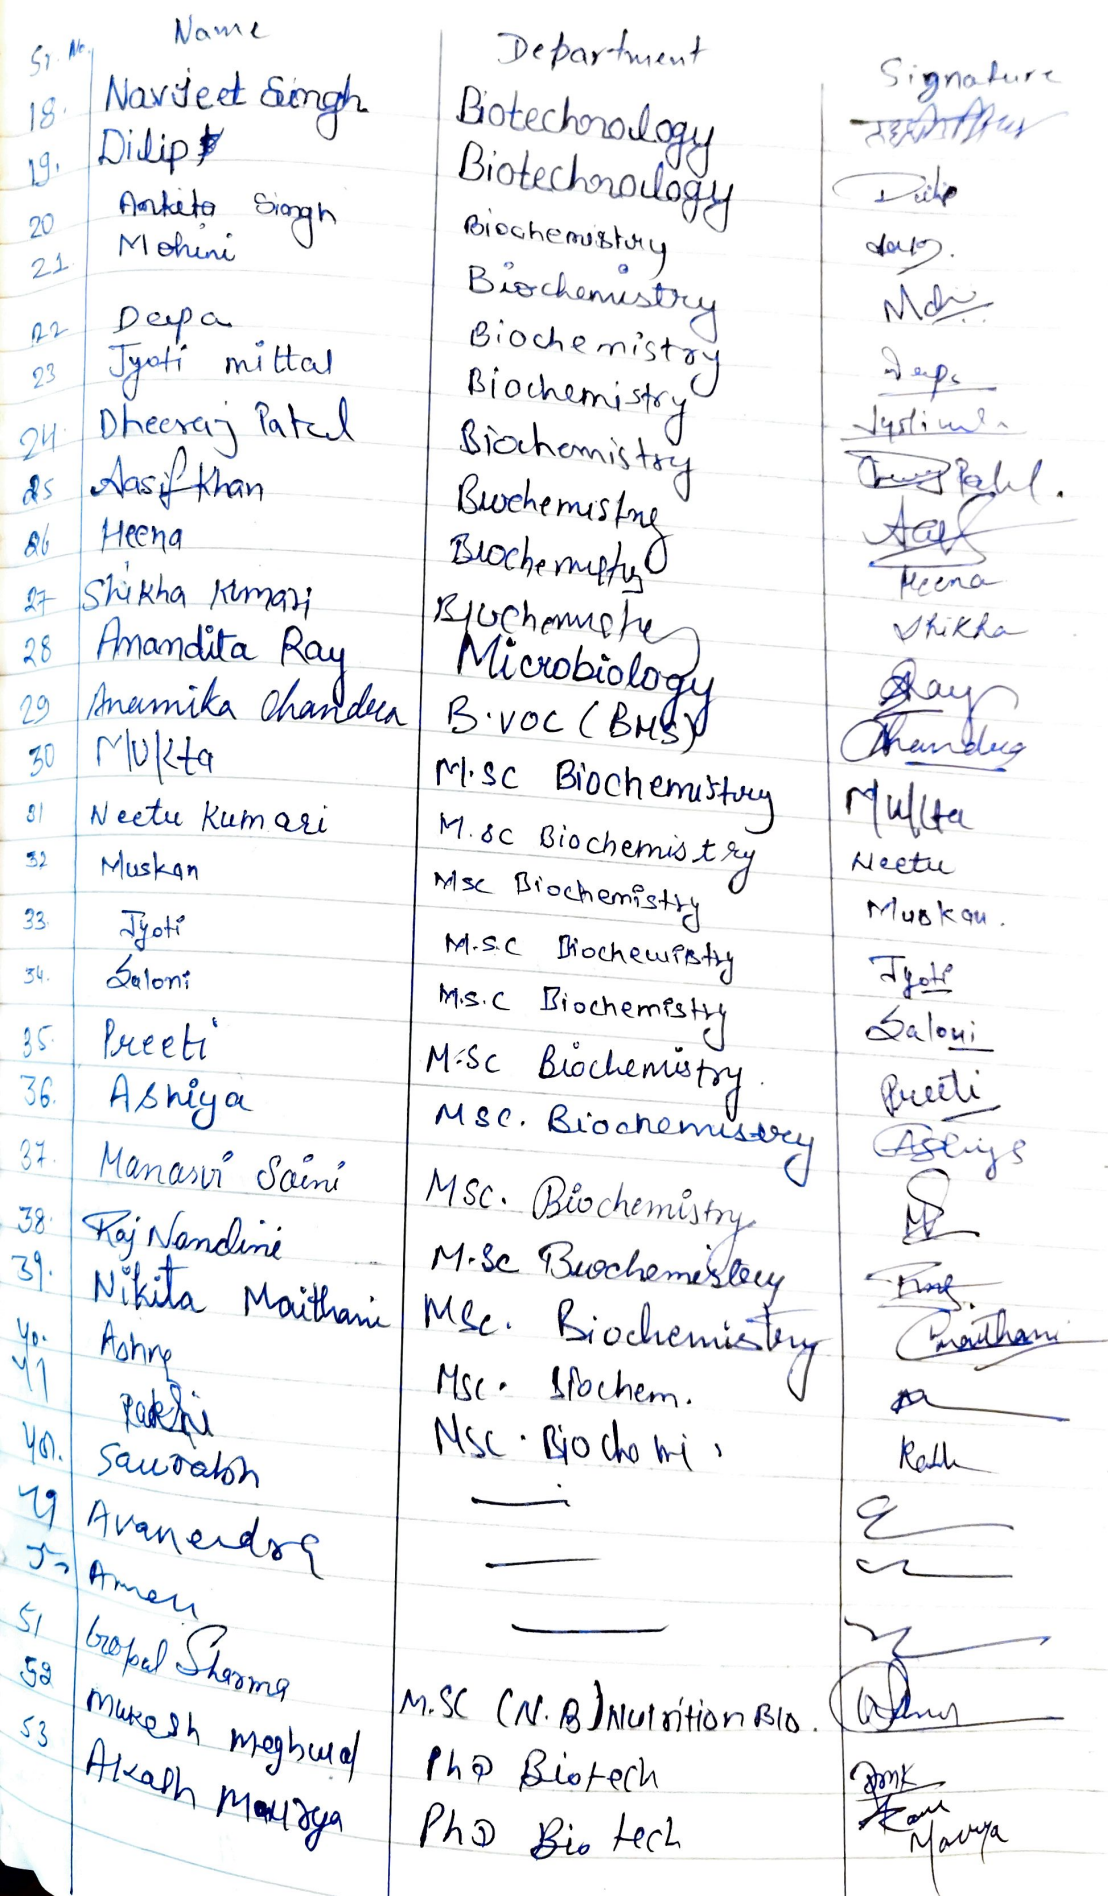 Sr. No. Name Department Signature
18. Navjeet Singh Biotechnology
19. Dilip Biotechnology Dilip
20 Ankita Singh Biochemistry
21. Mohini Biochemistry
22 Deepa Biochemistry Deepa
23 Jyoti mittal Biochemistry
24 Dheeraj Patel Biochemistry Patel.
25 Aasif Khan Biochemistry
26 Heena Biochemistry Heena
27 Shikha Kumari Biochemistry Shikha
28 Anandita Ray Microbiology Ray
29 Anamika Chandra B.VOC (BMS) Chandra
30 Mukta M.SC Biochemistry Mukta
31 Neetu Kumari M.SC Biochemistry Neetu
32 Muskan Msc Biochemistry Muskan.
33. Jyoti M.S.C Biochemistry Jyoti
34. Saloni M.S.C Biochemistry Saloni
35. Preeti M.SC Biochemistry. Preeti
36. Ashiya MSC. Biochemistry Ashiya
37. Manasvi Saini MSC. Biochemistry
38. Raj Nandini M.Sc Biochemistry
39. Nikita Maithani MSc. Biochemistry Maithani
40. MSc. Biochem.
41 Rakhi MSC. Biochemi
Saurabh
49 Avanendra
Aman
51 Gopal Sharma M.SC (N.B) Nutrition Bio.
52 Mukesh Meghwal PhD Biotech
53 Akash Maurya PhD Bio tech Maurya